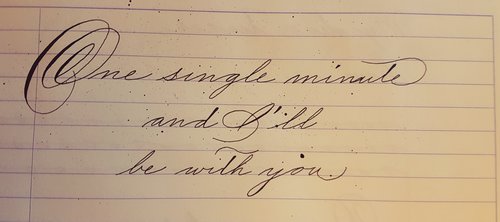 One single minute
and I'll
be with you.